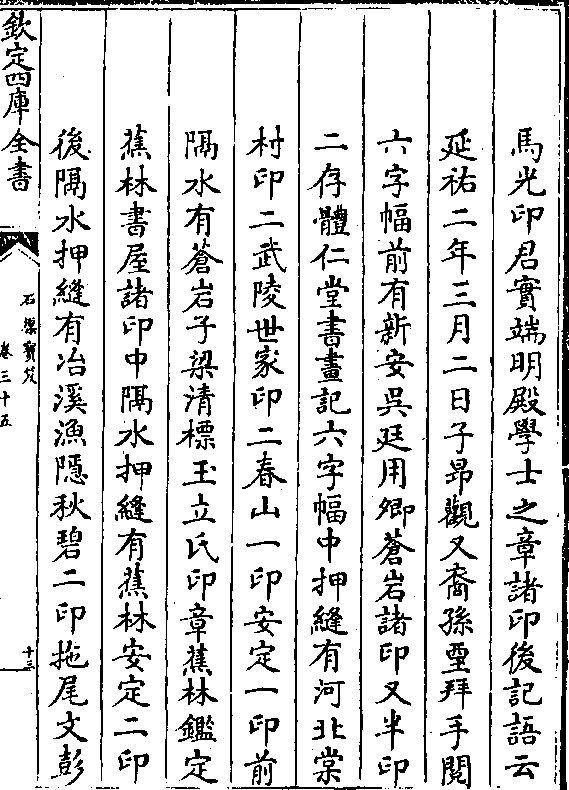 馬光印君實端明殿學士之章諸印後記語云
延祐二年三月二日子昂觀又裔孫堊拜手閱
六字幅前有新安吳廷用卿蒼岩諸印又半印
二存體仁堂書畫記六字幅中押縫有河北棠
村印二武陵世家印二春山一印安定一印前
隔水有蒼岩子梁清標玉立氏印章蕉林鑑定
蕉林書屋諸印中隔水押縫有蕉林安定二印
後隔水押縫有冶溪漁隱秋碧二印拖尾文彭
欽定四庫全書
石渠寶笈
卷三十五
十三